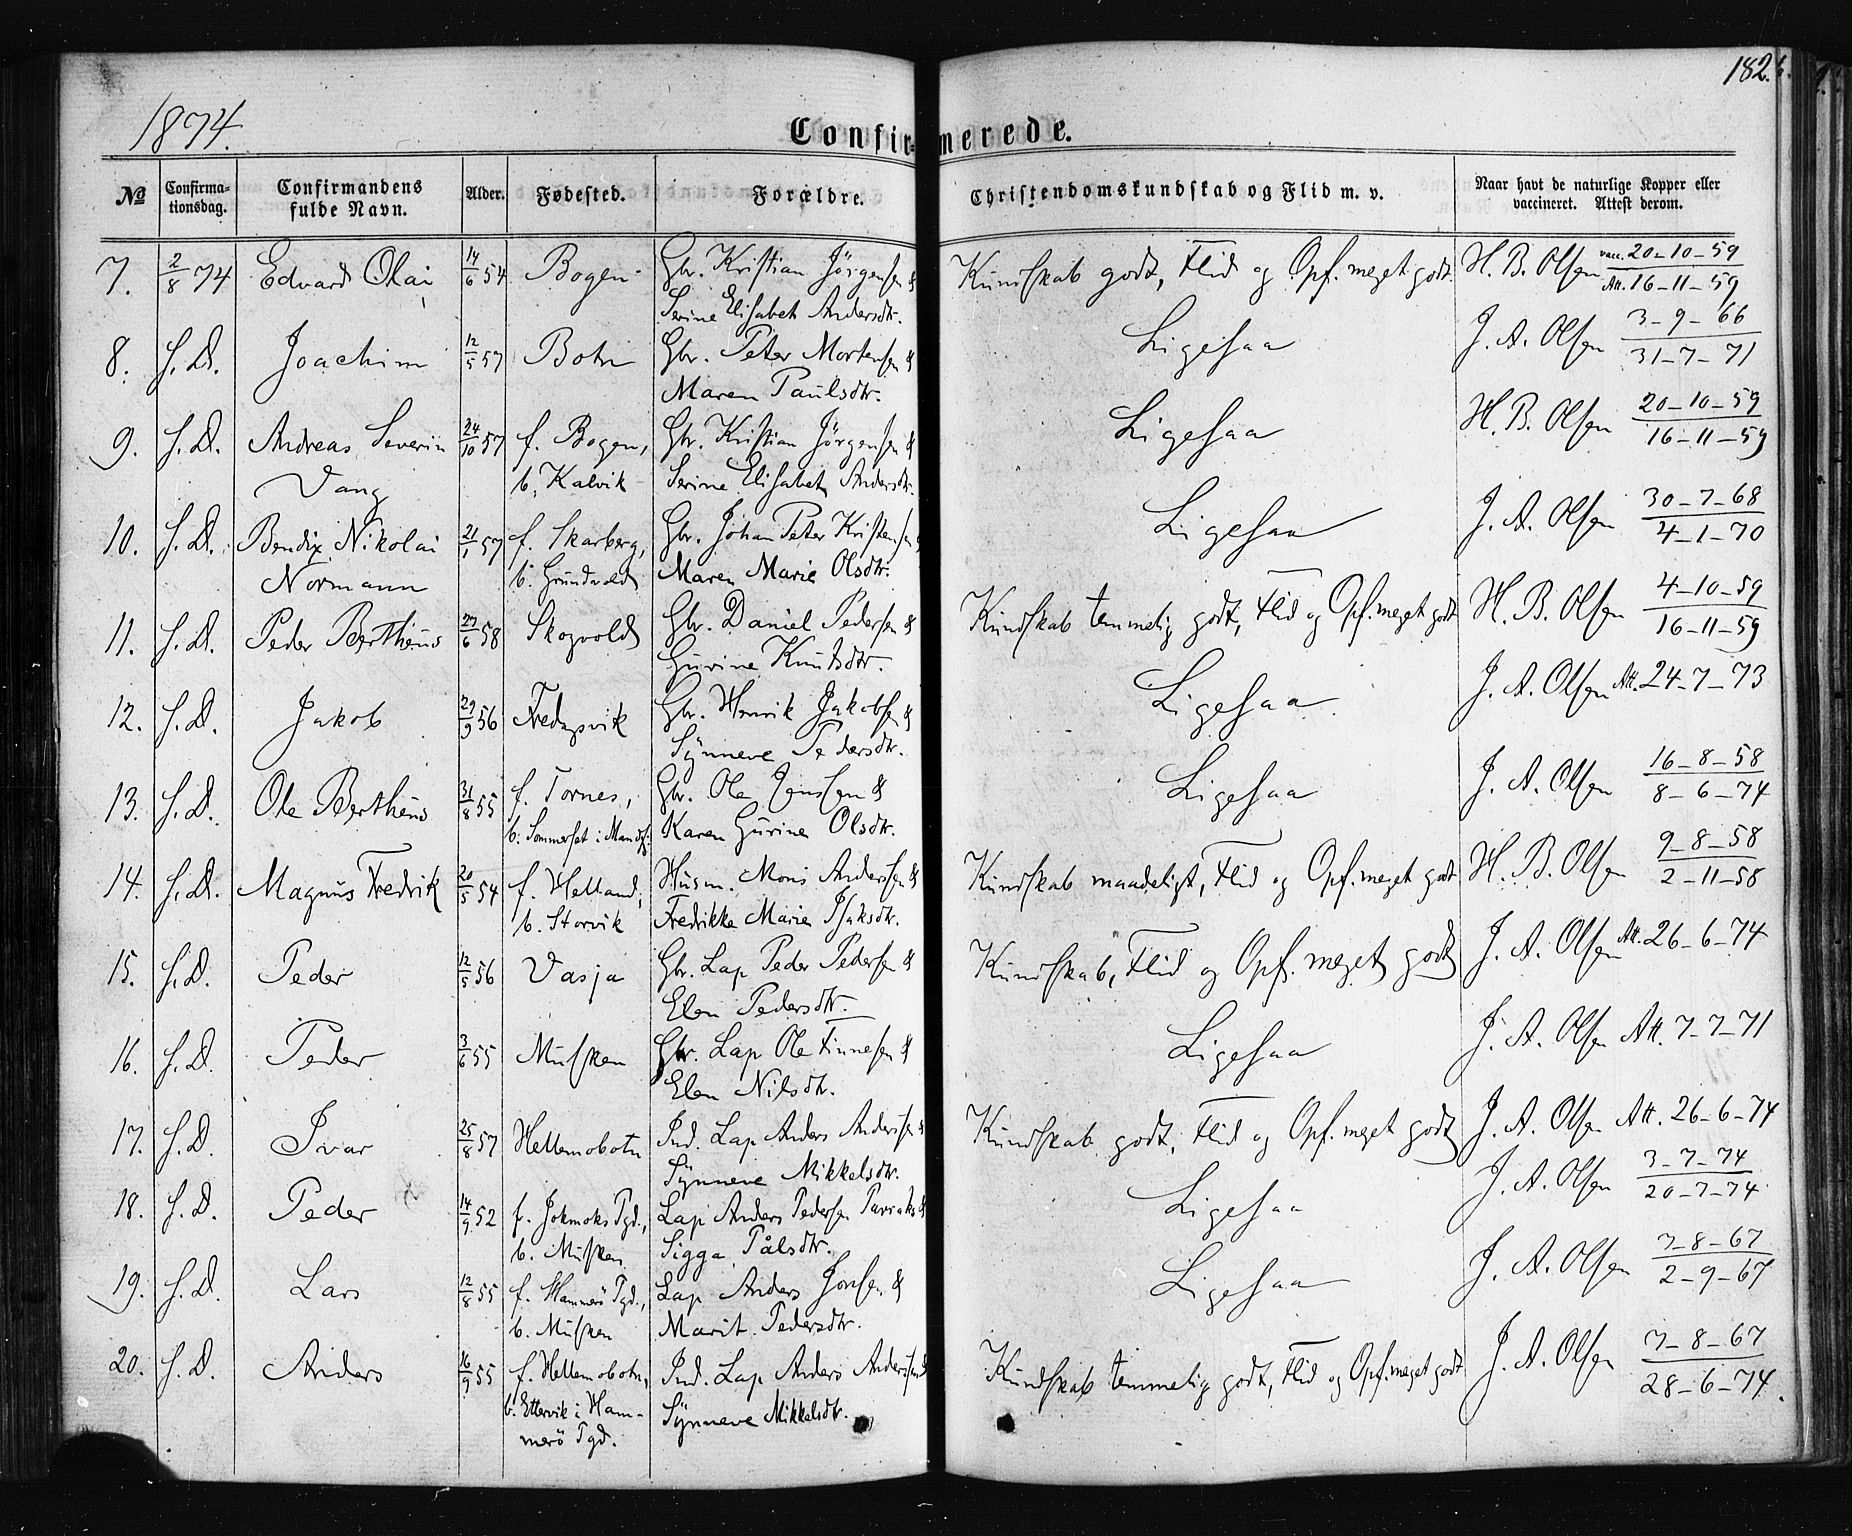 182.
1874.
Confirmerede.
No
Confirmationsdag.
Confirmandens fulde Navn.
Alder.
Fødested.
Forældre.
Christendomskundskab og Flid m. v.
Naar havt de naturlige Kopper eller vaccineret. Attest derom.
7. 2/8 74 Edvard Olai 14/6 54 Bogen Gbr. Kristian Jörgensen & Kundskab godt, Flid og Opf. meget godt. H. B. Olsen vacc. 20-10-59
Serine Elisabet Andersdtr. Att. 16-11-59
8. S. D. Joachim 12/5 57 Botn Gbr. Peter Mortensen & Ligesaa J. A. Olsen 3-9-66
Maren Paulsdtr. 31-7-71
9. S. D. Andreas Severin 24/10 57 f. Bogen, Gbr. Kristian Jörgensen & Ligesaa H. B. Olsen 20-10-59
Vang b. Kalvik Serine Elisabet Andersdtr. 16-11-59
10. S. D. Bendix Nikolai 21/1 57 f. Skarberg, Gbr. Johan Peter Kristensen & Ligesaa J. A. Olsen 30-7-68
Normann b. Grundvold Maren Marie Olsdtr. 4-1-70
11. S. D. Peder Berthëus 27/6 58 Skogvold Gbr. Daniel Pedersen & Kundskab temmelig godt, Flid og Opf. meget godt H. B. Olsen 4-10-59
Gurine Knutsdtr. 16-11-59
12. S. D. Jakob 29/9 56 Fredagsvik Gbr. Henrik Jakobsen & Ligesaa J. A. Olsen Att. 24-7-73
Synneve Pedersdtr.
13. S. D. Ole Berthëus 31/8 55 f. Tornes, Gbr. Ole Jenssen & Ligesaa J. A. Olsen 16-8-58
b. Sommerset i Mandfj. Karen Gurine Olsdtr. 8-6-74
14. S. D. Magnus Fredrik 20/5 54 f. Helland, Husm. Mons Anderssen & Kundskab maadeligt, Flid og Opf. meget godt H. B. Olsen 9-8-58
b. Storvik Fredrikke Marie Isaksdtr. 2-11-58
15. S. D. Peder 12/5 56 Vasja Gbr. Lap Peder Pedersen & Kundskab, Flid og Opf. meget godt J. A. Olsen Att. 26-6-74
Elen Pedersdtr.
16. S. D. Peder 3/6 55 Musken Gbr. Lap Ole Finnesen & Ligesaa J. A. Olsen Att. 7-7-71
Elen Nilsdtr.
17. S. D. Ivar 25/8 57 Hellemobotn Ind. Lap Anders Anderssen & Kundskab godt, Flid og Opf. meget godt J. A. Olsen Att. 26-6-74
Synneve Mikkelsdtr.
18. S. D. Peder 14/9 52 f. Jokmoks Pgd., Lap Anders Pedersen & Ligesaa J. A. Olsen 3-7-74
b. Musken Sigga Pålsdtr. 20-7-74
19. S. D. Lars 12/8 55 f. Hammerö Pgd., Lap Anders Jonsen & Ligesaa J. A. Olsen 7-8-67
b. Musken Marit Pedersdtr. 2-9-67
20. S. D. Anders 16/9 55 f. Hellemobotn, Ind. Lap Anders Anderssen & Kundskab temmelig godt, Flid og Opf. meget godt J. A. Olsen 7-8-67
b. Ettervik i Ham- Synneve Mikkelsdtr. 28-6-74.
merö Pgd.